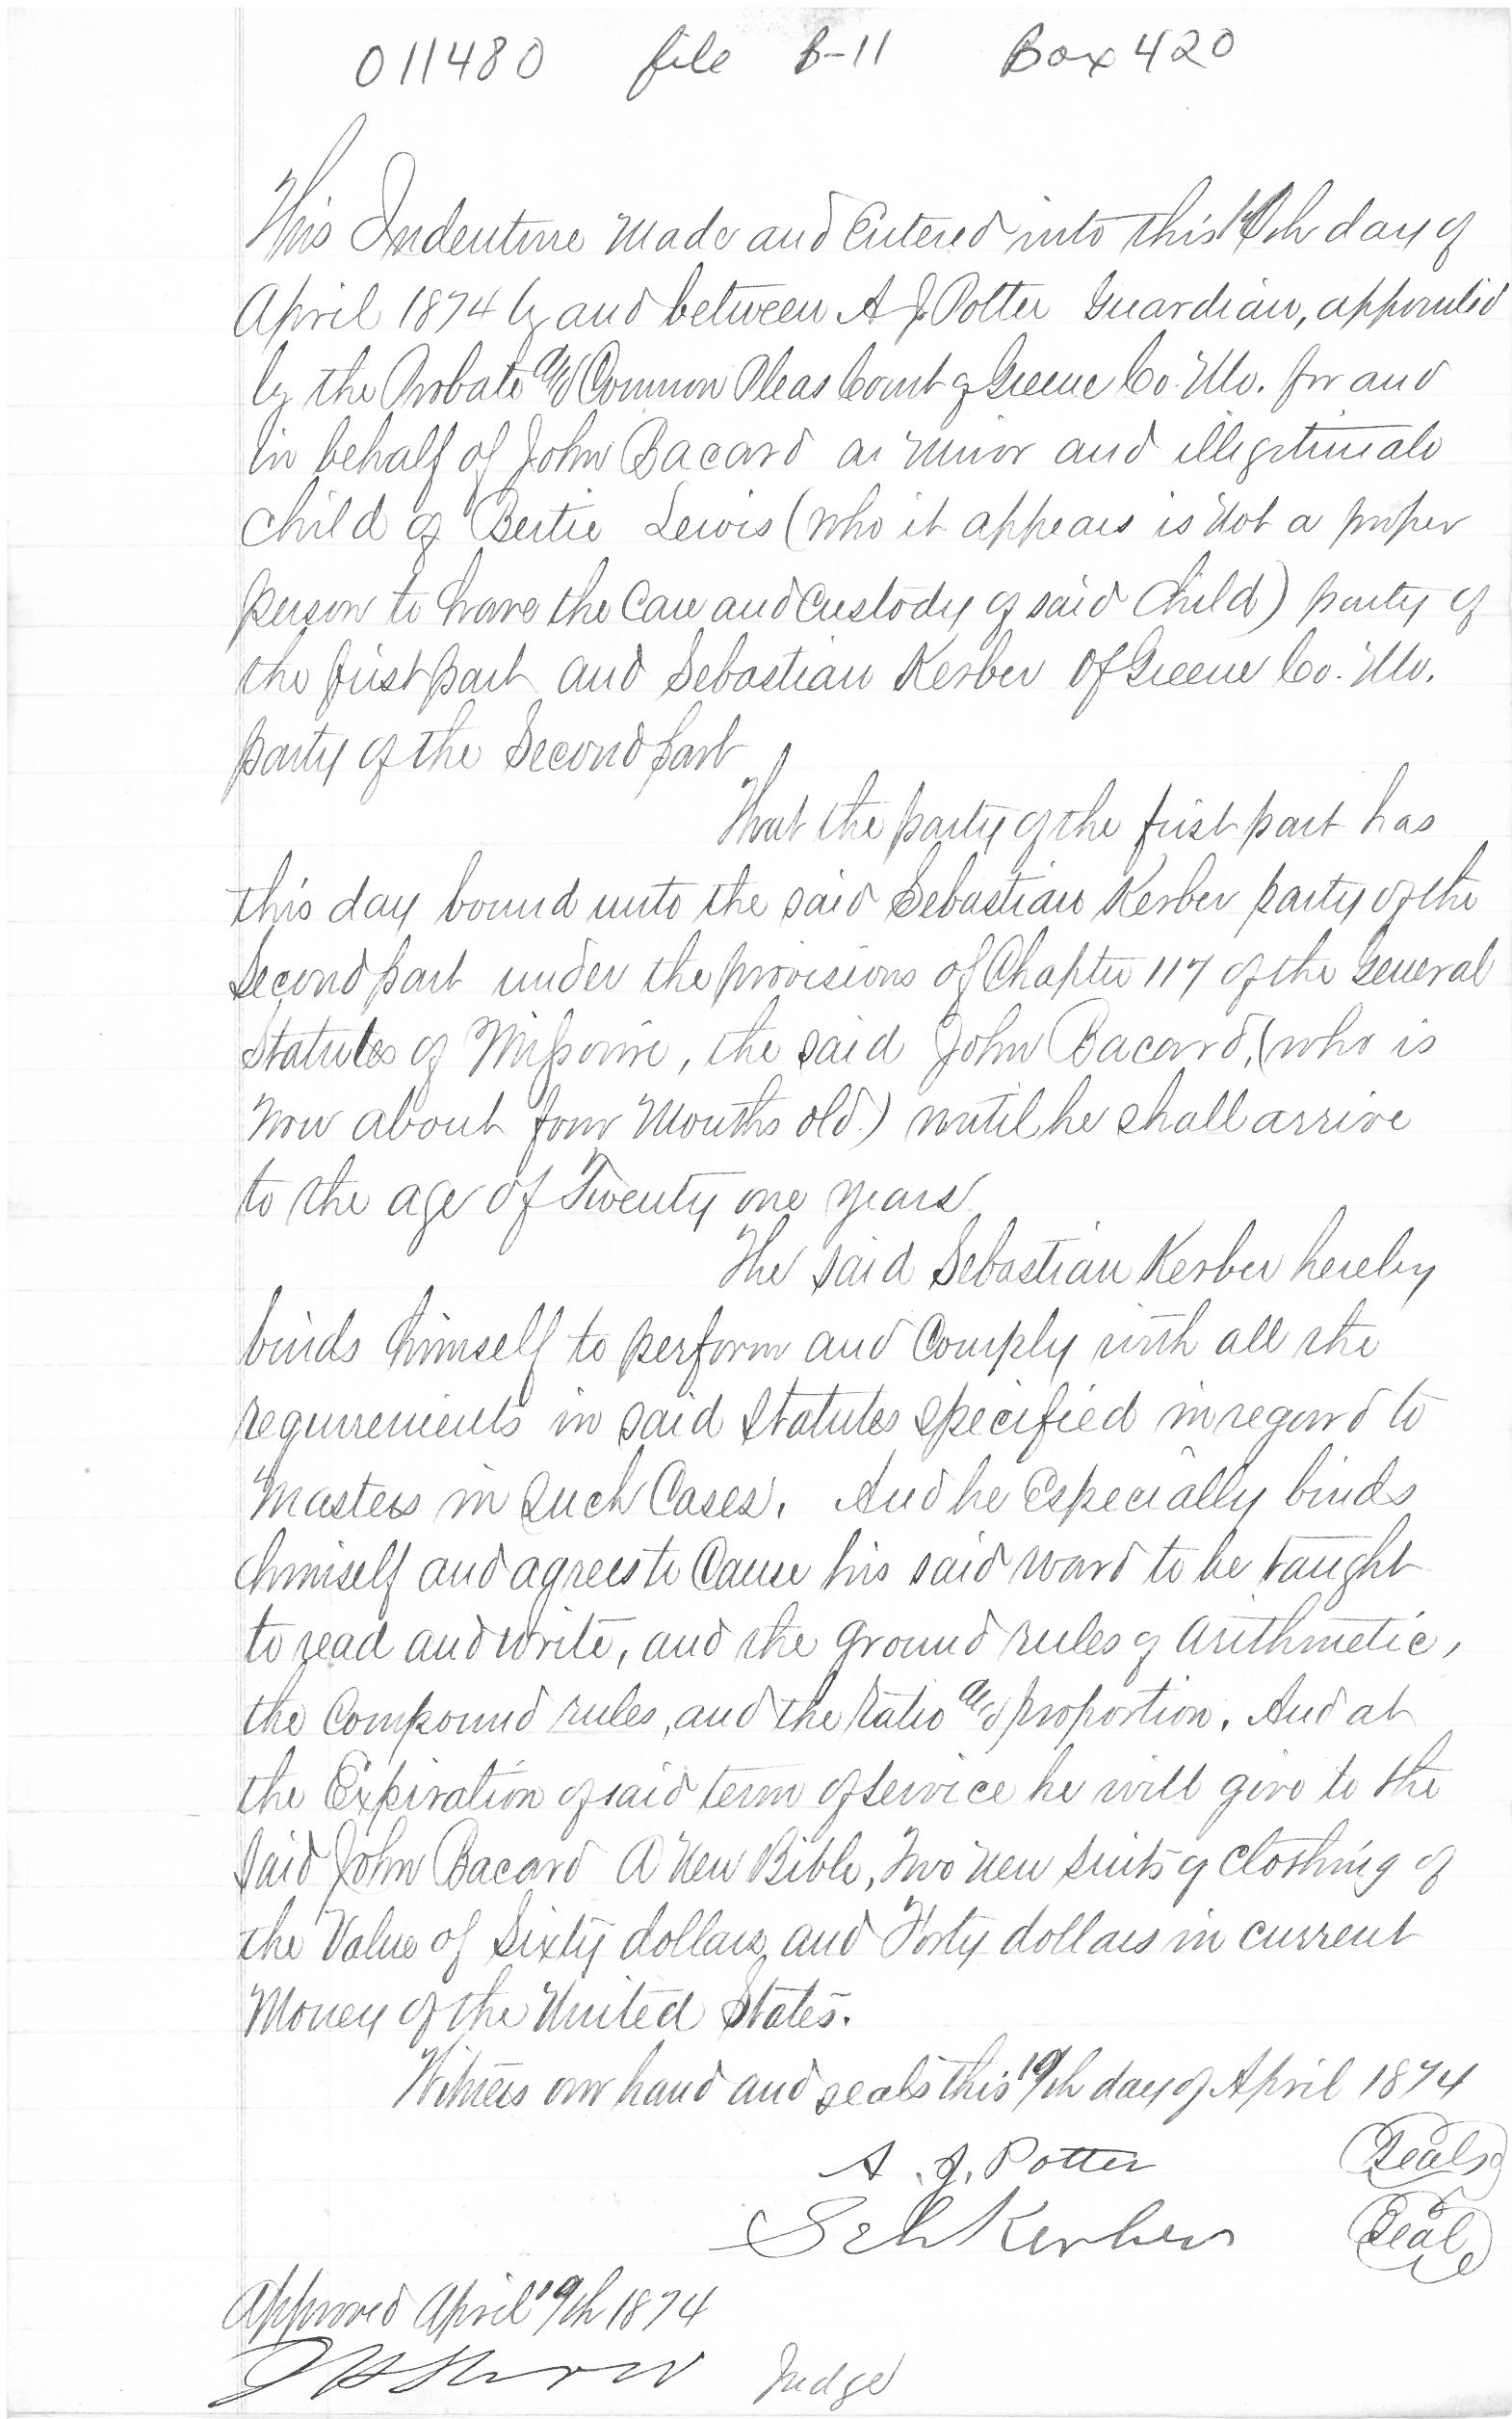 011480 file B-11 Box 420
This Indenture Made and Entered into this day of
April 1874 by and between A J. Potter Guardian, appointed
by the Probate and Common Pleas Court of Greene Co. Mo. for and
in behalf of John Bacard a minor and illegitimate
child of Bertie Lewis (who it appears is not a proper
person to have the Care and Custody of said Child) party of
the first part and Sebastian Kerber of Greene Co. Mo.
party of the Second part
That the party of the first part has
this day bound unto the said Sebastian Kerber party of the
Second part under the provisions of Chapter 117 of the General
Statutes of Missouri, the said John Bacard, (who is
now about four Months old.) until he shall arrive
to the age of Twenty one years
The said Sebastian Kerber hereby
binds himself to perform and Comply with all the
requirements in said Statutes specified in regard to
Masters in such Cases. And he Especially binds
himself and agrees to Cause his said ward to be taught
to read and write, and the ground rules of arithmetic,
the Compound rules, and the ratio and proportion. And at
the Expiration of said term of service he will give to the
said John Bacard A New Bible, Two new suits of clothing of
the Value of Sixty dollars, and Forty dollars in current
Money of the United States.
Witness our hand and seals this 19th day of April 1874
A. J. Potter Seal
Seb Kerber Seal
Approved April 19th 1874
Judge